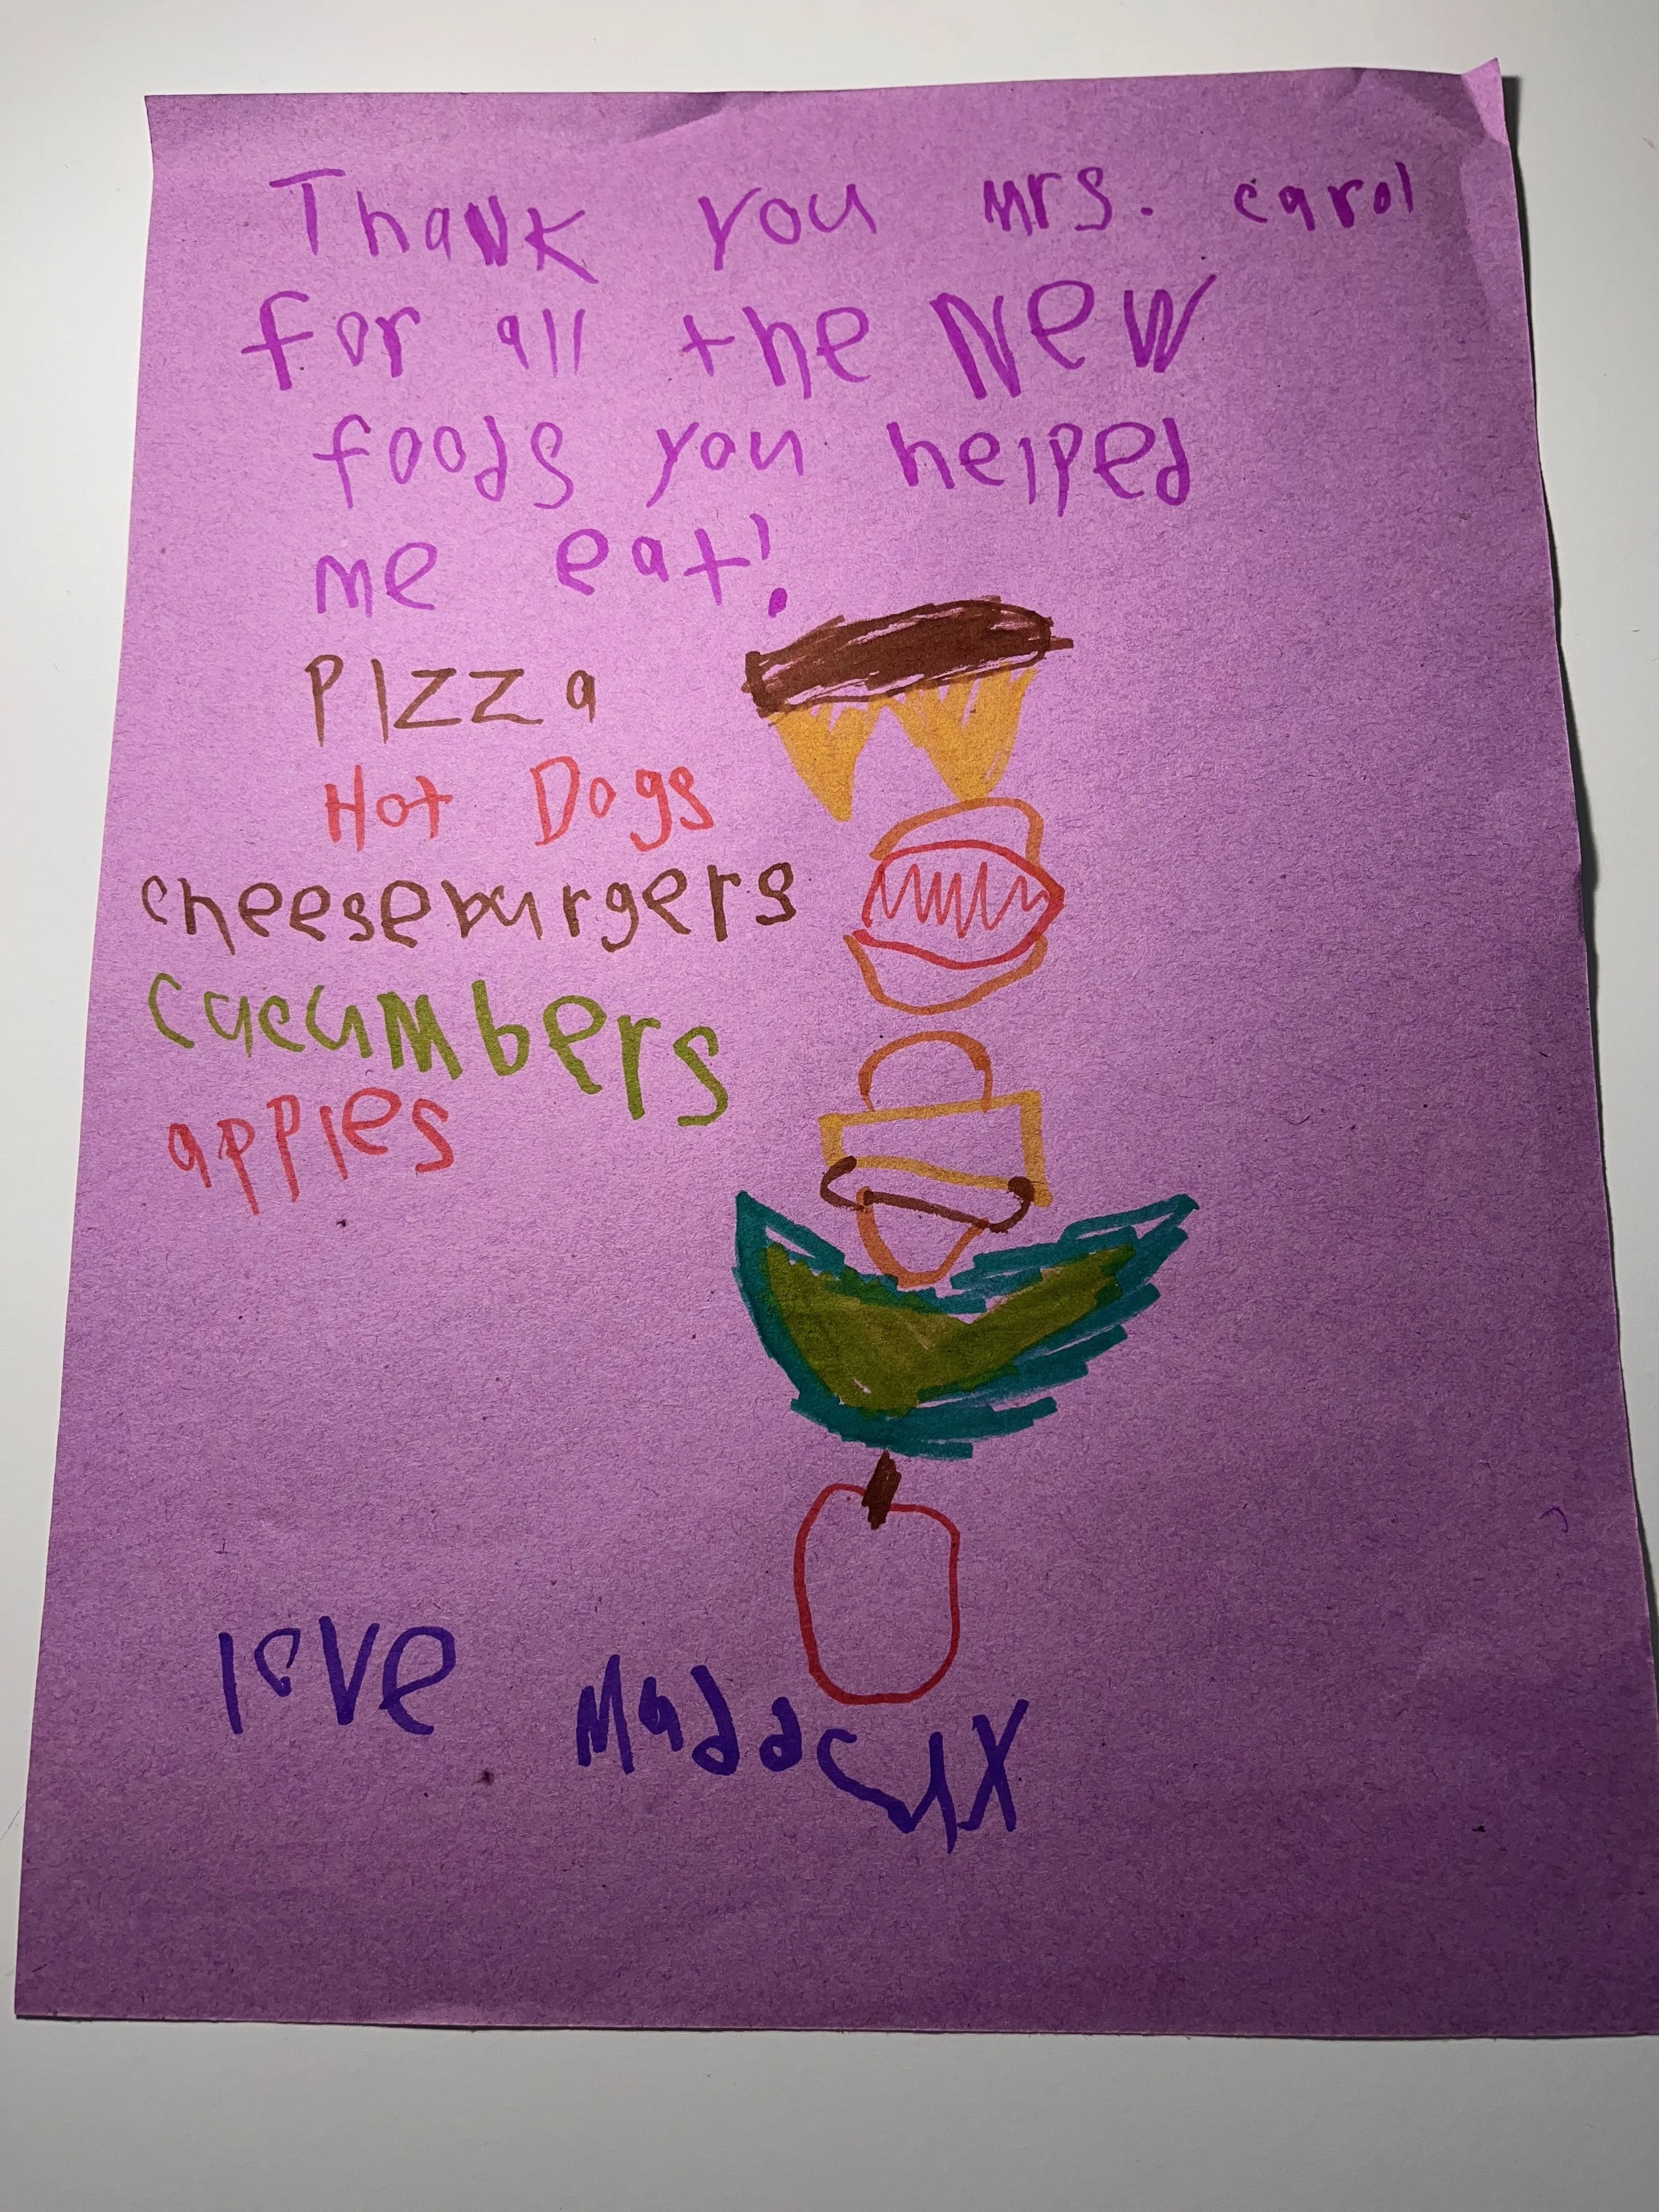 Thank you mrs. carol
for all the New
foods you helped
me eat!
PIzza
Hot Dogs
cheeseburgers
cucumbers
apples
love